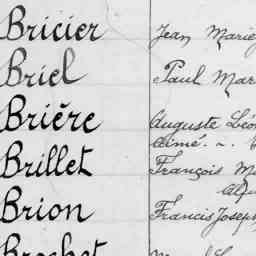 Bricier Jean Marie
Briel Paul Mar
Brière Auguste Léo
Aimé
Brillet François M
Brion Francis Joseph
Brochet